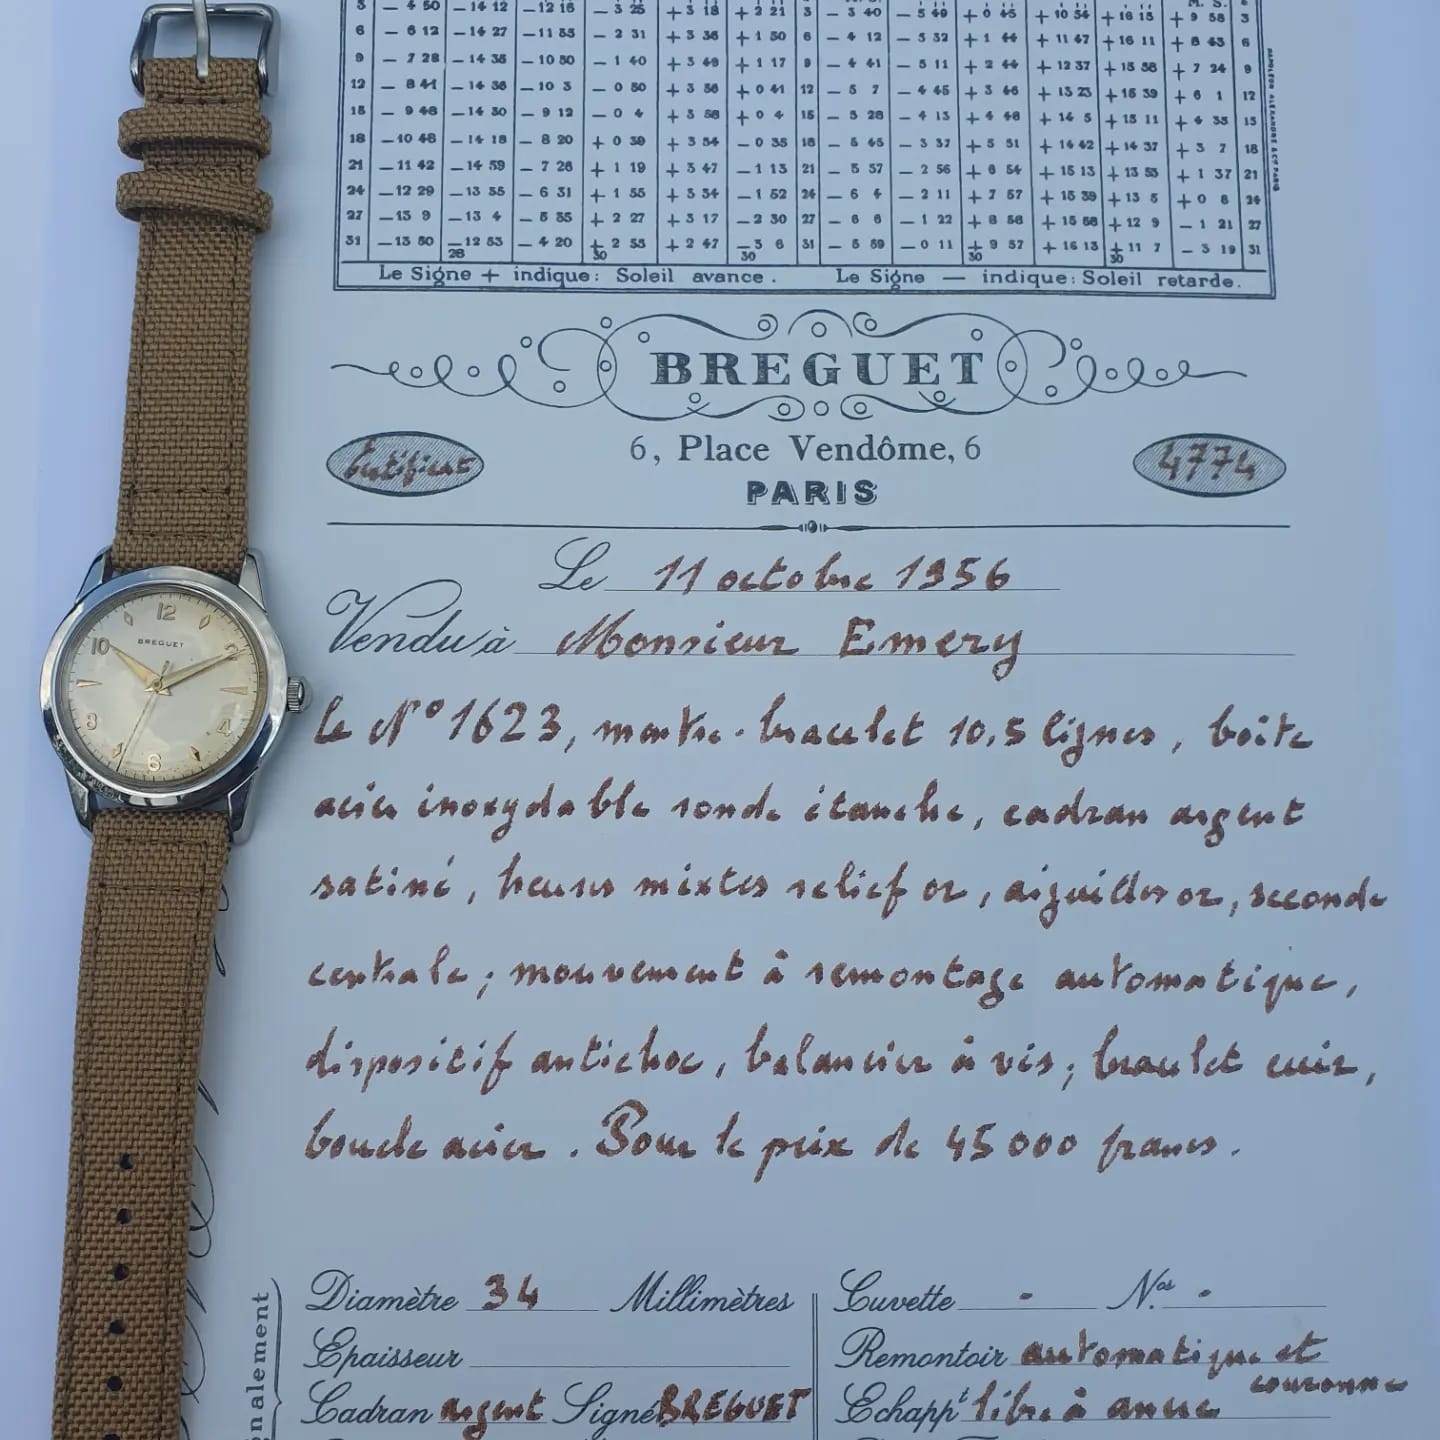 3 — 4 50 —14 12 —12 16 — 3 25 + 3 18 + 2 21 3 — 3 40 — 5 49 + 0 45 + 10 54 + 16 15 + 9 58 3
6 — 6 12 —14 27 —11 35 — 2 31 + 3 36 + 1 50 6 — 4 12 — 5 32 + 1 44 + 11 47 + 16 11 + 8 43 6
9 — 7 28 —14 36 —10 50 — 1 40 + 3 49 + 1 17 9 — 4 41 — 5 11 + 2 44 + 12 37 + 15 58 + 7 24 9
12 — 8 41 —14 36 —10 3 — 0 50 + 3 56 + 0 41 12 — 5 7 — 4 45 + 3 46 + 13 23 + 15 39 + 6 1 12
15 — 9 48 —14 30 — 9 12 — 0 4 + 3 58 + 0 4 15 — 5 28 — 4 13 + 4 48 + 14 5 + 15 11 + 4 35 15
18 —10 48 —14 18 — 8 20 + 0 39 + 3 54 — 0 35 18 — 5 45 — 3 37 + 5 51 + 14 42 + 14 37 + 3 7 18
21 —11 42 —14 59 — 7 26 + 1 19 + 3 47 — 1 13 21 — 5 57 — 2 56 + 6 54 + 15 13 + 13 53 + 1 37 21
24 —12 29 —13 35 — 6 31 + 1 55 + 3 34 — 1 52 24 — 6 4 — 2 11 + 7 57 + 15 39 + 13 5 + 0 8 24
27 —13 9 —13 4 — 5 35 + 2 27 + 3 17 — 2 30 27 — 6 6 — 1 22 + 8 58 + 15 58 + 12 9 — 1 21 27
31 —13 50 —12 53 — 4 20 + 2 53 + 2 47 — 3 6 31 — 5 59 — 0 11 + 9 57 + 16 13 + 11 7 — 3 19 31
28 30 30 30 30
Le Signe + indique: Soleil avance. Le Signe — indique: Soleil retarde.
BREGUET
Certificat 6, Place Vendôme, 6 4774
PARIS
Le 11 octobre 1956
Vendu à Monsieur Emery
le N° 1623, montre-bracelet 10,5 lignes, boîte
acier inoxydable ronde étanche, cadran argent
satiné, heures mixtes relief or, aiguilles or, seconde
centrale; mouvement à remontage automatique,
dispositif antichoc, balancier à vis; bracelet cuir,
boucle acier. Pour le prix de 45 000 francs.
Diamètre 34 Millimètres Cuvette - N.os -
Epaisseur Remontoir automatique et couronne
Cadran argent Signé BREGUET Echapp.t libre à ancre
12
BREGUET
10 2
8 4
6